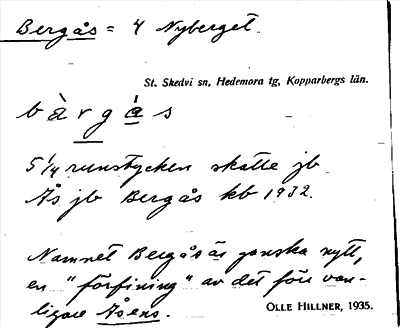 Bergås = 4 Nyberget.
St. Skedvi sn, Hedemora tg, Kopparbergs län.
bàrgås
5 1/4 runstycken skatte jb
Ås jb Bergås kb 1932.
Namnet Bergås är ganska nytt,
en "förfining" av det förr van-
ligare Åsens.
OLLE HILLNER, 1935.